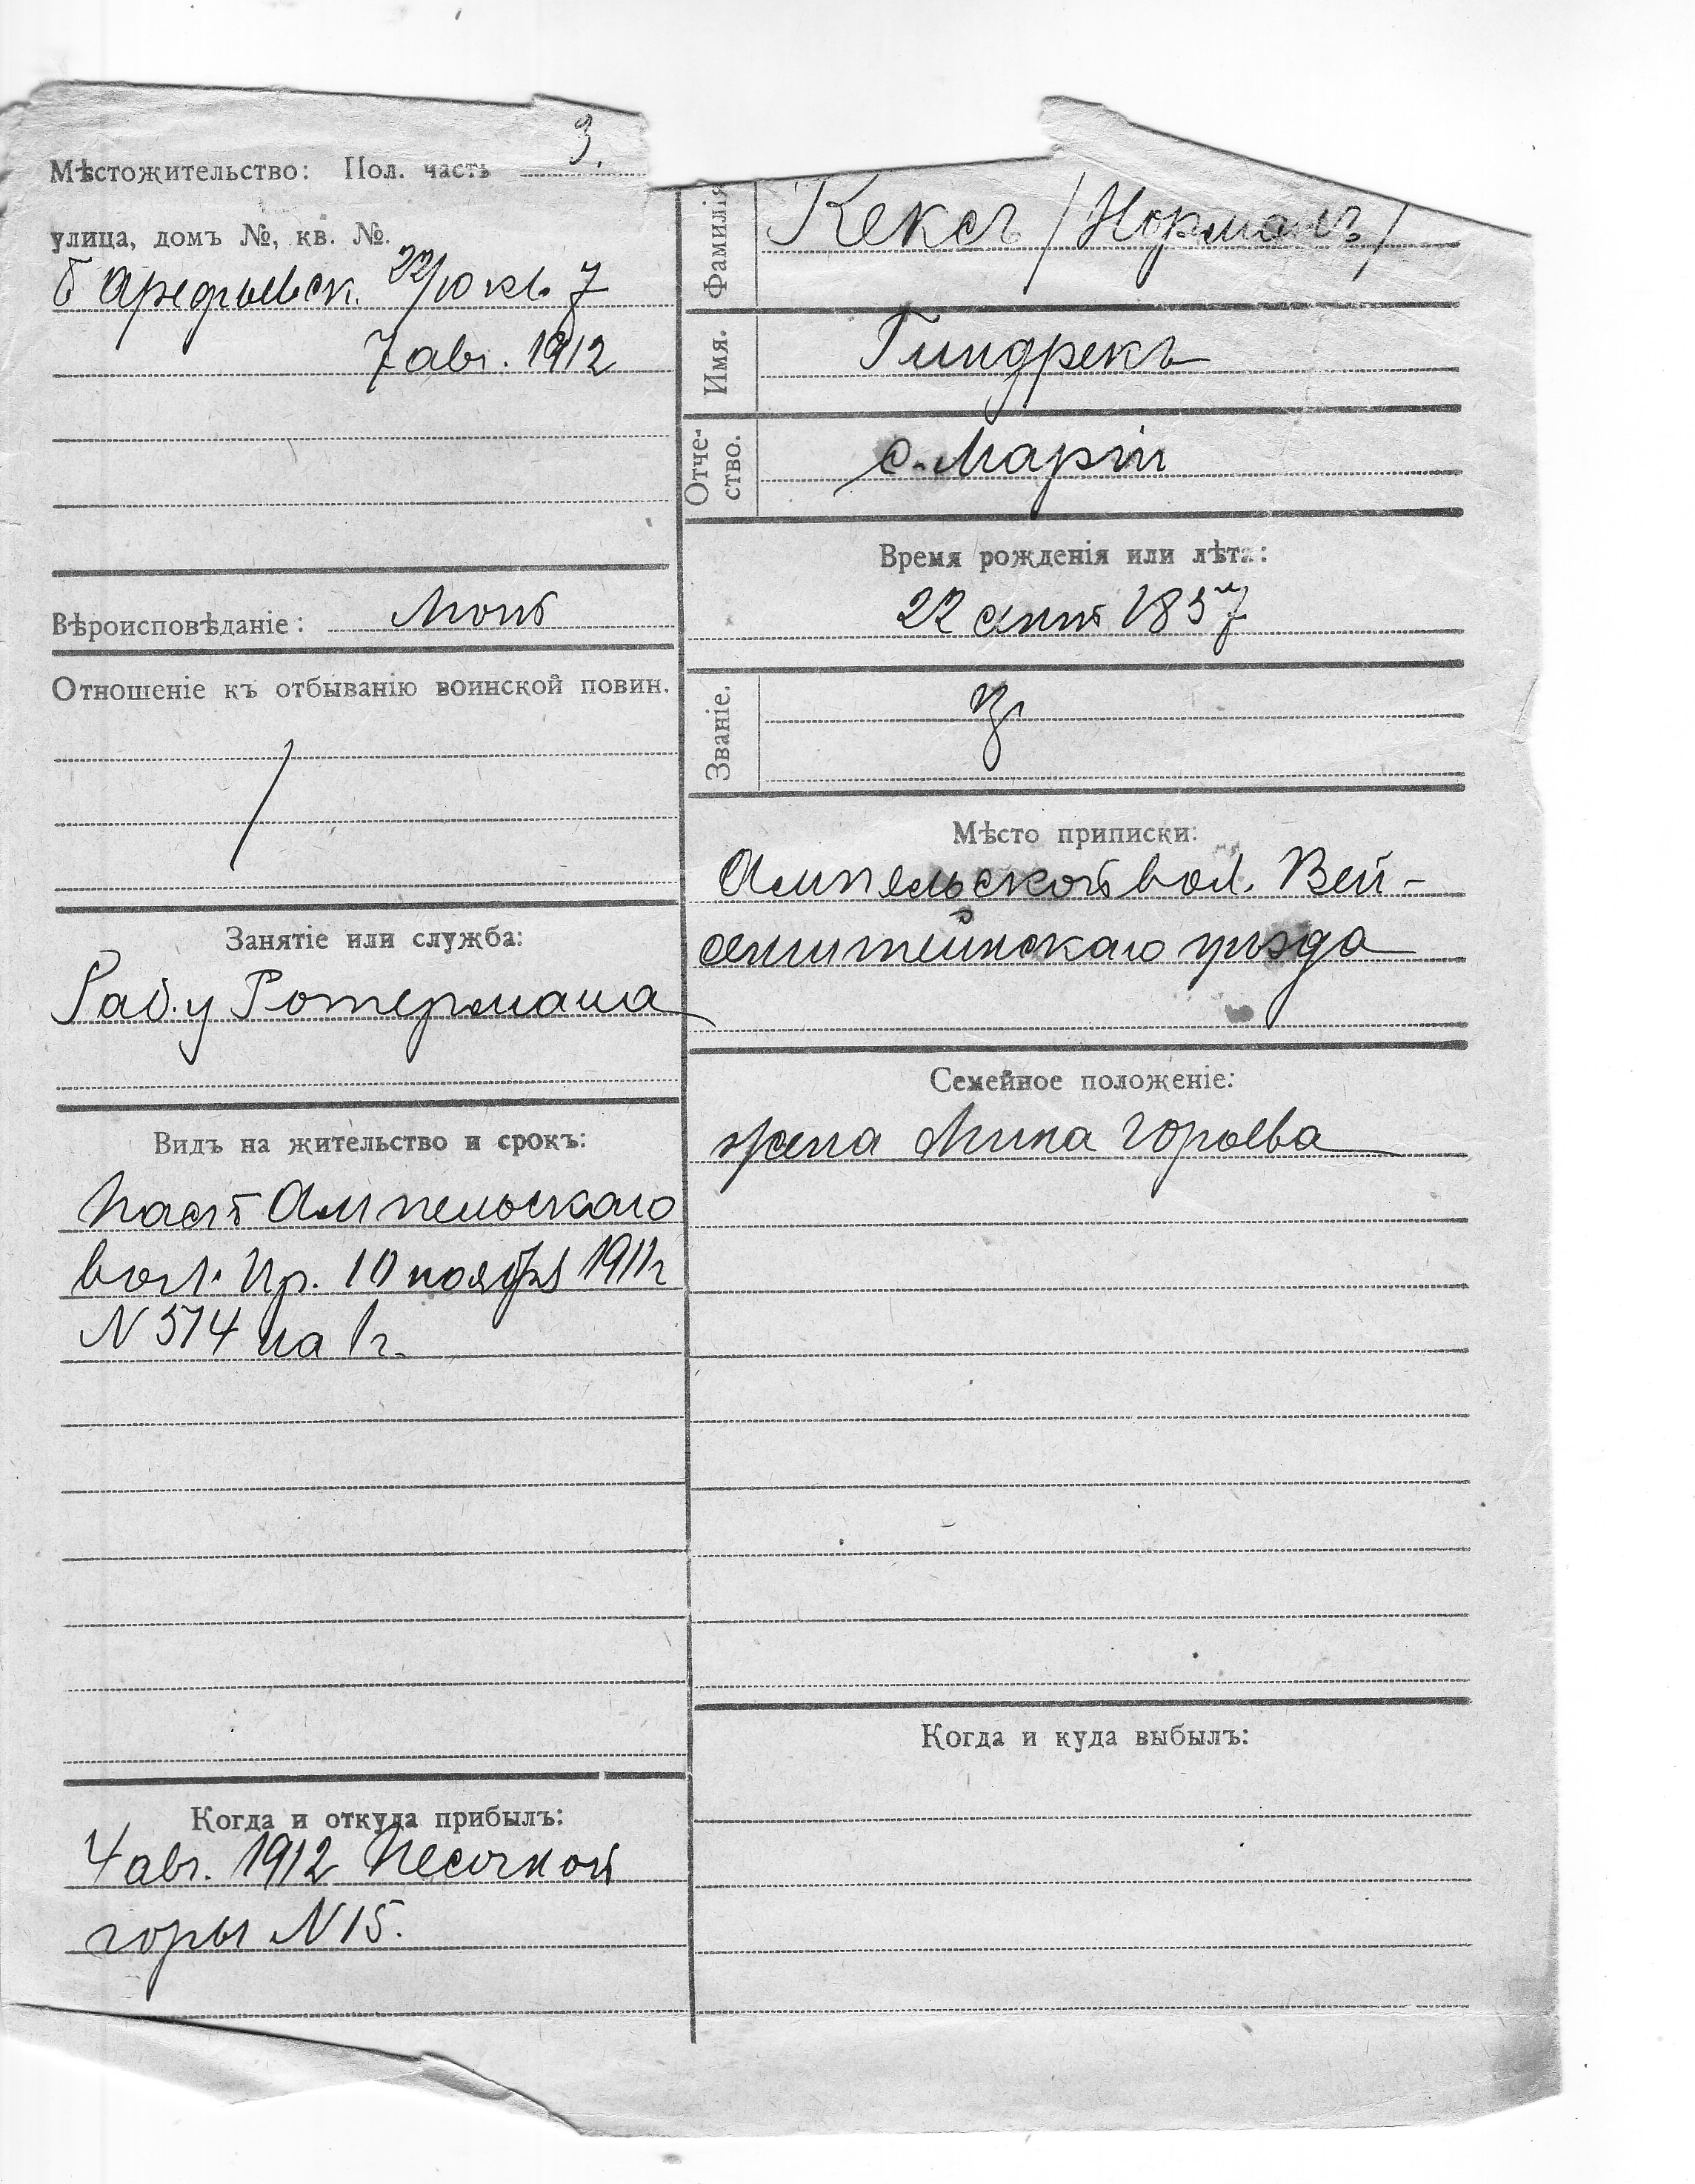 Мѣстожительство: Пол. часть 3.
улица, домъ №, кв. №.
22/10 кв. 7
7 авг. 1912
Вѣроисповѣданіе: Лют
Отношеніе къ отбыванію воинской повин.
Занятіе или служба:
Раб. у Ротермана
Видъ на жительство и срокъ:
Пасп Ампельскаго
вол. Пр. 10 ноября 1911 г
N 574 на 1 г.
Когда и откуда прибылъ:
4 авг. 1912 Песочной
горы N 15.
Фамилія Кексъ / Норманъ /
Имя. Гиндрекъ
Отче-
ство. с. Маріи
Время рожденія или лѣта:
22 сент 1857
Званіе.
Мѣсто приписки:
Ампельской вол. Вей-
сенштейнскаго уѣзда
Семейное положеніе:
жена Мина Юрьева
Когда и куда выбылъ: